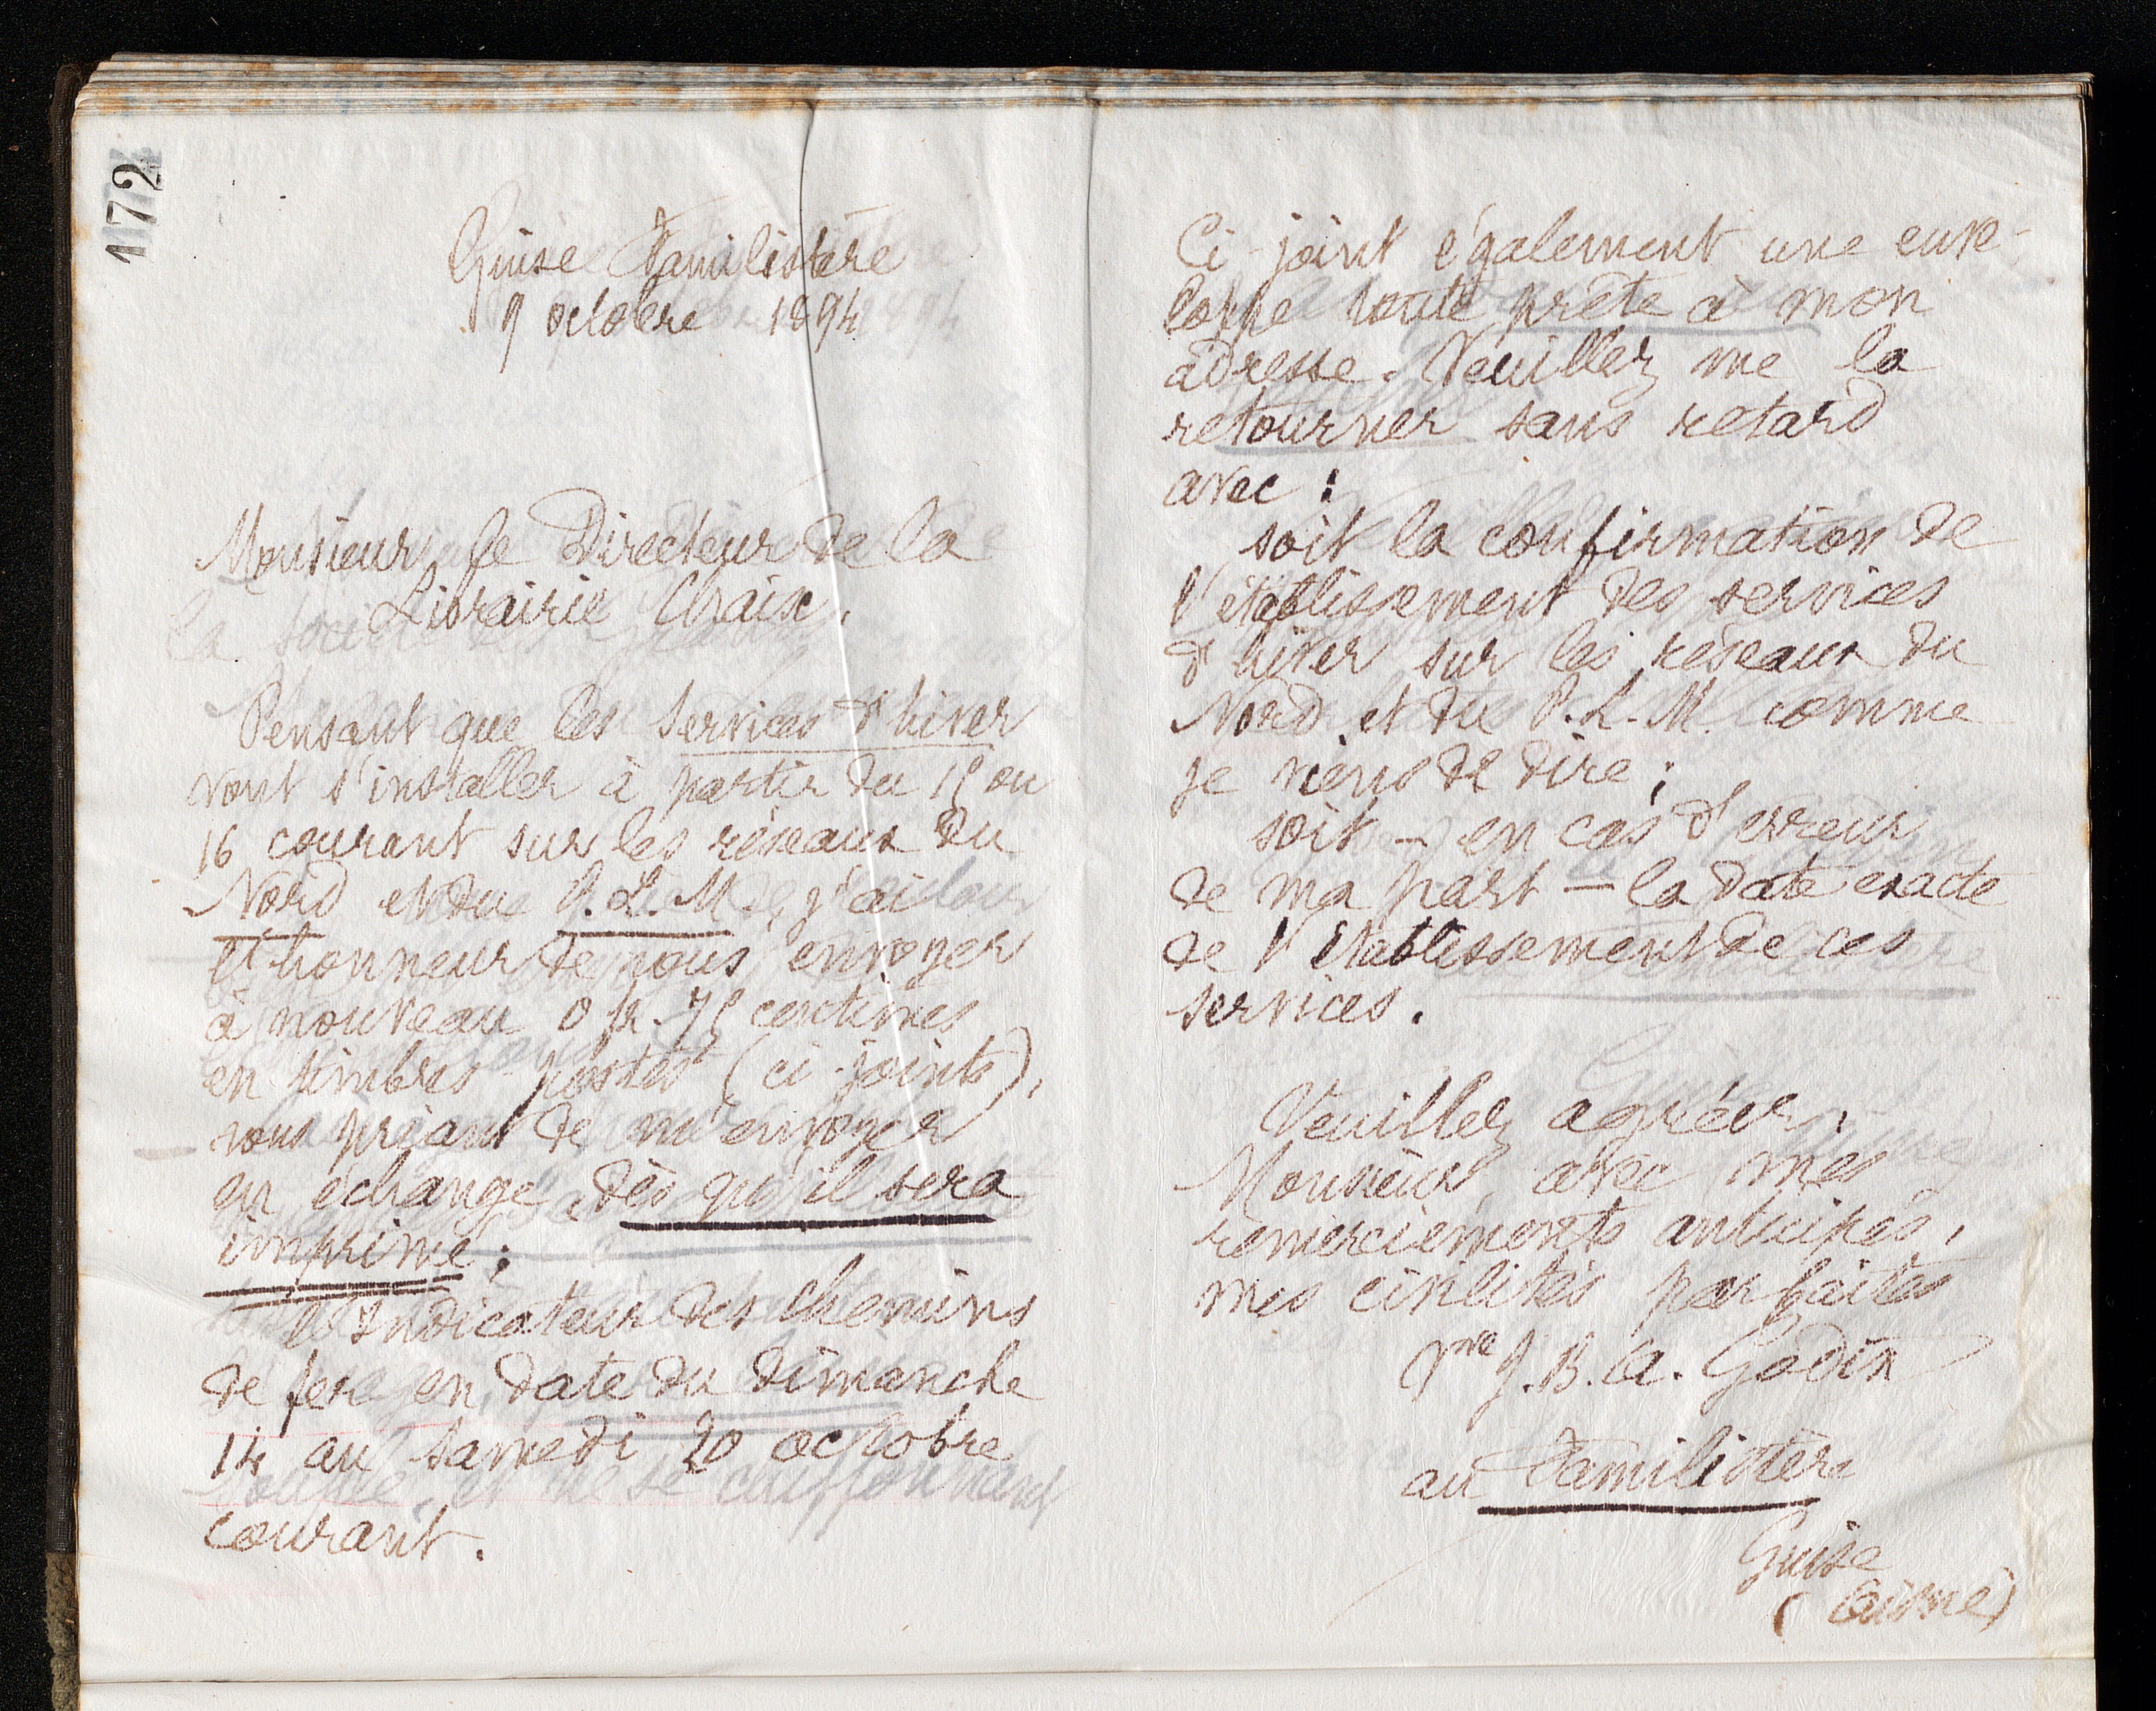 172
Guise Familistère
9 octobre 1894
Monsieur le Directeur de la
Librairie Chaix,
Pensant que les services d'hiver
vont s'installer à partir du 15 ou
16 courant sur les réseaux du
Nord et du P.L.M., j'ai
l'honneur de vous envoyer
à nouveau 0 fr. 75 centimes
en timbres-postes (ci-joints),
vous priant de m'envoyer
en échange, dès qu'il sera
imprimé;
l'Indicateur des chemins
de fer en date du dimanche
14 au samedi 20 octobre
courant.
Ci-joint également une enve-
loppe toute prête à mon
adresse. Veuillez me la
retourner sans retard
avec :
soit la confirmation de
l'établissement des services
d'hiver sur les réseaux du
Nord et du P.L.M. comme
je viens de dire;
soit — en cas d'erreur
de ma part — la date exacte
de l'établissement de ces
services.
Veuillez agréer,
Monsieur, avec mes
remerciements anticipés,
mes civilités parfaites
Vve J.B.A. Godin
au Familistère
Guise
(Aisne)